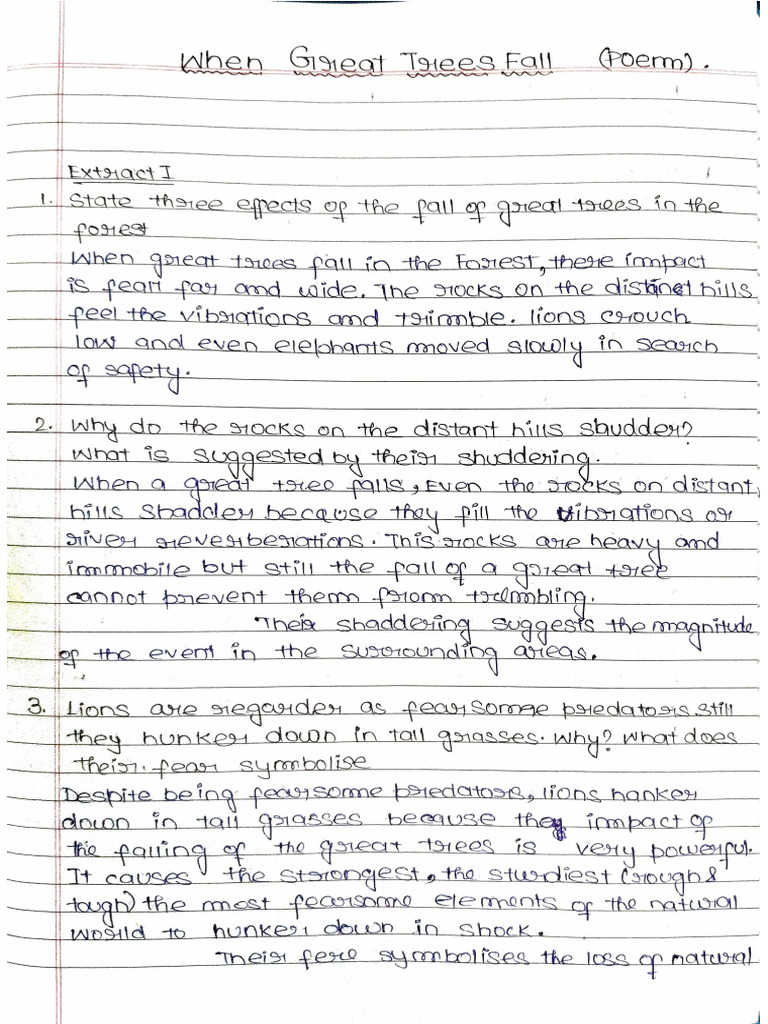 When Great Trees Fall (Poem).
Extract I
1. State three effects of the fall of great trees in the
forest
When great trees fall in the Forest, there impact
is fearr far and wide. The rocks on the distant hills
feel the vibrations and trimble. lions crouch
low and even elephants moved slowly in search
of safety.
2. Why do the rocks on the distant hills shudder?
What is suggested by their shuddering.
When a great tree falls, Even the rocks on distant,
hills shadder because they fill the vibrations or
river reverberations. This rocks are heavy and
immobile but still the fall of a great tree
cannot prevent them from trembling.
Their shaddering suggests the magnitude
of the event in the surrounding areas.
3. Lions are regarder as fearsome predators still
they hunker down in tall grasses. Why? What does
their. fear symbolise
Despite being fearsome predators, lions hanker
down in tall grasses because they impact of
the falling of the great trees is very powerful.
It causes the strongest, the sturdiest (rough &
tough) the most fearsome elements of the natural
world to hunker down in shock.
Their fere symbolises the loss of natural